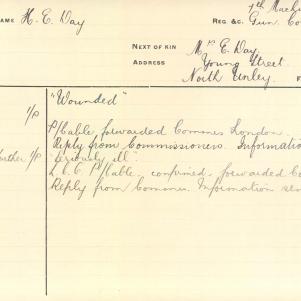 7th Machi
NAME H. E. Day REG. &C. Gun. Co
NEXT OF KIN Mr E. Day,
ADDRESS Young Street
North Unley.
"Wounded"
P/Cable, forwarded Commrs London.
Reply from Commissioners. Informatio
"seriously ill".
L.C.C. P/Cable, confirmed, forwarded Co
Reply from Commrs. Information sen